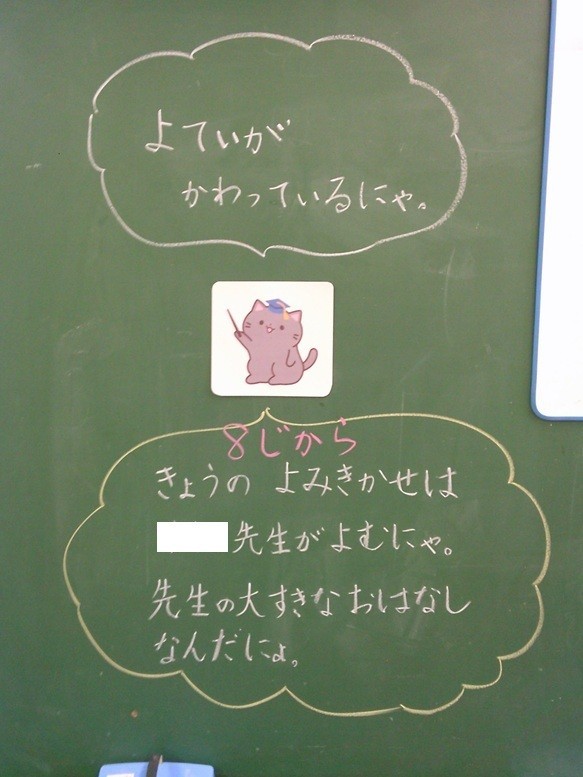 よていが
かわっているにゃ。
8じから
きょうの よみきかせは
先生がよむにゃ。
先生の大すきなおはなし
なんだにょ。